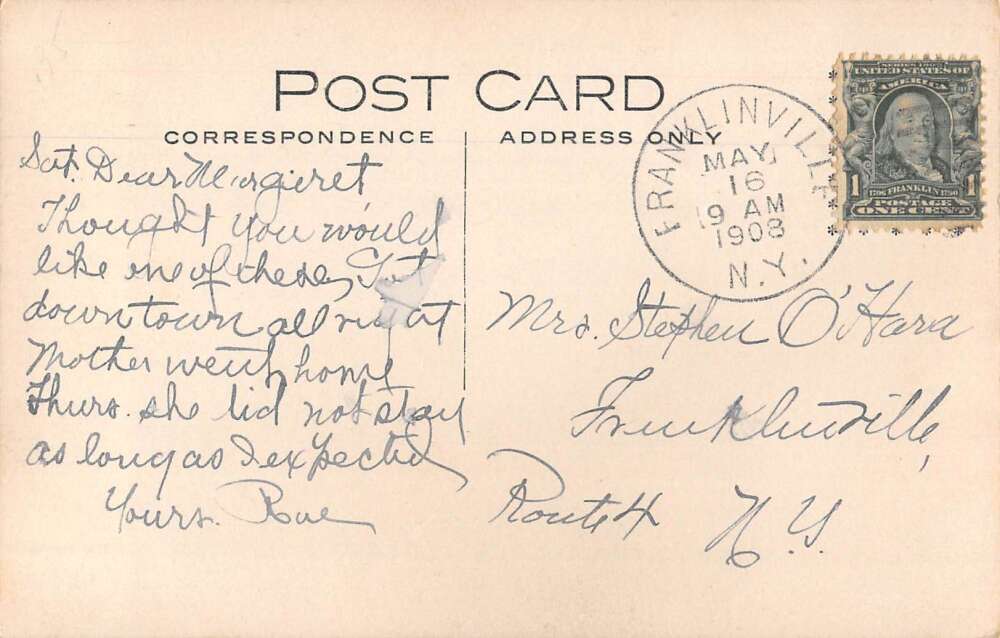 POST CARD
CORRESPONDENCE
ADDRESS ONLY
Sat. Dear Margieret
Thought you would
like one of these, Got
down town all right
Mother went home
Thurs. she did not stay
as long as I expected
Yours. Rae
FRANKLINVILLE
MAY
16
9 AM
1908
N.Y.
SERIES 1902
UNITED STATES OF
AMERICA
1 1
1706 FRANKLIN 1790
POSTAGE
ONE CENT
Mrs. Stephen O'Hara
Franklinville,
Route 4 N.Y.